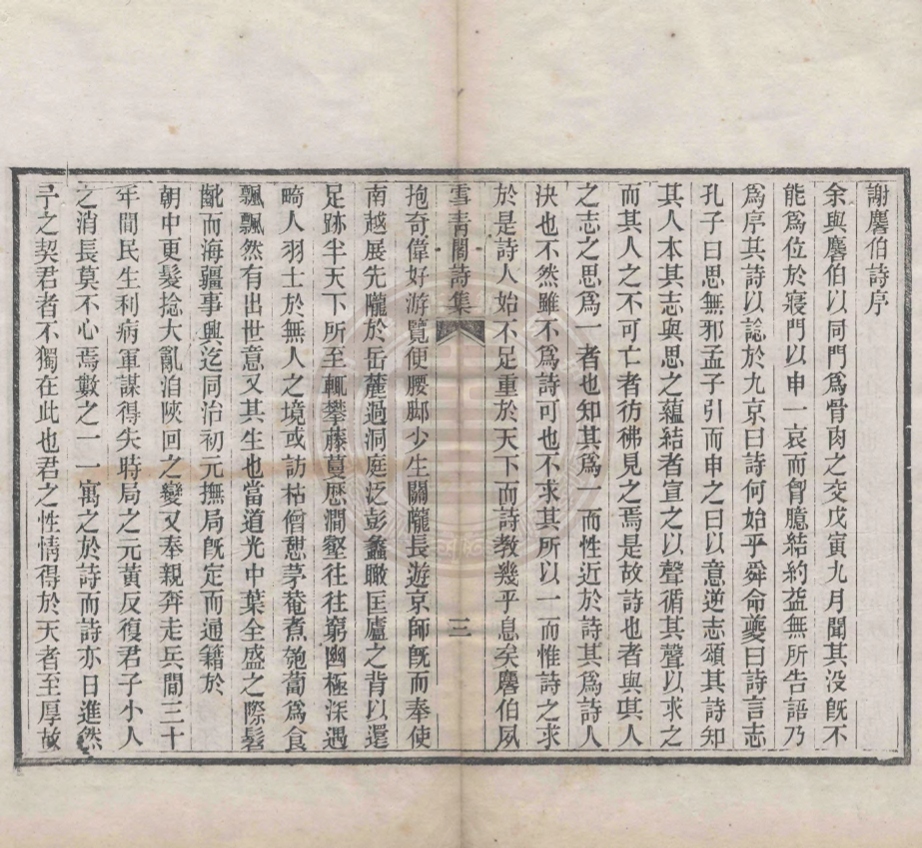 謝麐伯詩序
余與麐伯以同門爲骨肉之交戊寅九月聞其没旣不
能爲位於寢門以申一哀而胷臆結約益無所告語乃
爲序其詩以誌於九京曰詩何始乎舜命夔曰詩言志
孔子曰思無邪孟子引而申之曰以意逆志頌其詩知
其人本其志與思之藴結者宣之以聲循其聲以求之
而其人之不可亡者彷彿見之焉是故詩也者與其人
之志之思爲一者也知其爲一而性近於詩其爲詩人
決也不然雖不爲詩可也不求其所以一而惟詩之求
於是詩人始不足重於天下而詩教幾乎息矣麐伯夙
雪青閣詩集 三
抱奇偉好游覽便腰脚少生關隴長遊京師旣而奉使
南越展先隴於岳麓過洞庭泛彭蠡瞰匡廬之背以還
足跡半天下所至輒攀藤蔓歷澗壑往往窮幽極深遇
畸人羽士於無人之境或訪枯僧憇茅菴煮匏蔔爲食
飄飄然有出世意又其生也當道光中葉全盛之際髫
齔而海疆事興迄同治初元撫局旣定而通籍於
朝中更髮捻大亂洎陜回之變又奉親奔走兵間三十
年間民生利病軍謀得失時局之元黃反復君子小人
之消長莫不心焉數之一一寓之於詩而詩亦日進然
予之契君者不獨在此也君之性情得於天者至厚故